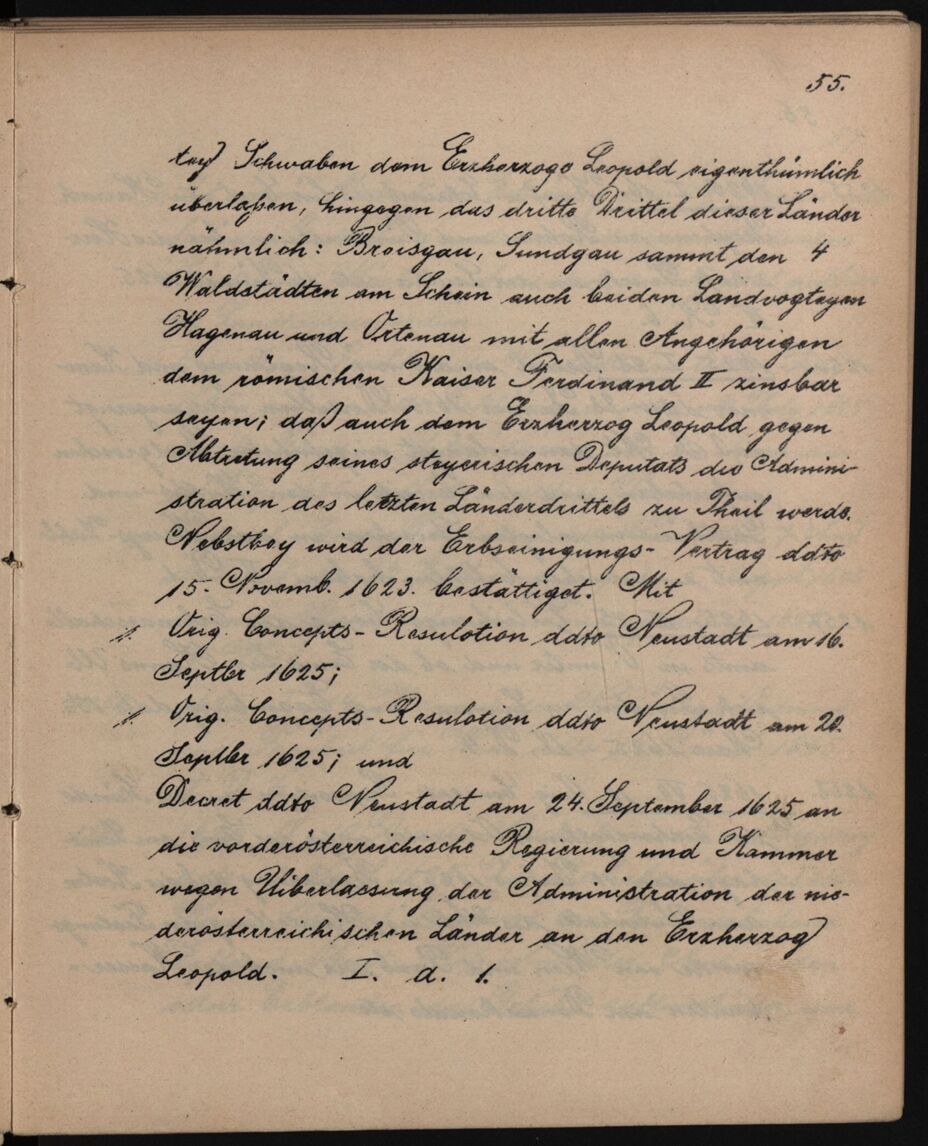 55.
tey) Schwaben dem Erzherzoge Leopold eigenthümlich
überlaßen, hingegen das dritte Drittel dieser Länder
nähmlich: Breisgau, Sundgau sammt den 4
Waldstädten am Schein auch beiden Landvogteyen
Hagenau und Ortenau mit allen Angehörigen
dem römischen Kaiser Ferdinand II zinsbar
seyen; daß auch dem Erzherzog Leopold gegen
Abtretung seines steyerischen Deputats die Admini-
stration des letzten Länderdrittels zu Theil werde.
Nebstbey wird der Erbseinigungs-Vertrag ddto
15. Novemb. 1623. bestättiget. Mit
Orig. Concepts-Resulotion ddto Neustadt am 16.
Septbr 1625;
Orig. Concepts-Resulotion ddto Neustadt am 20.
Septbr 1625; und
Decret ddto Neustadt am 24. September 1625 an
die vorderösterreichische Regierung und Kammer
wegen Uiberlassung der Administration der nie-
derösterreichischen Länder an den Erzherzog
Leopold. I. a. 1.